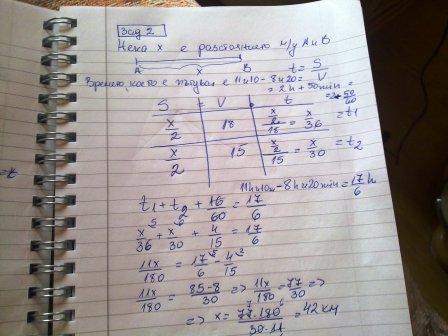 зад 2
Нека x е разстоянието м/у A и B
A x B t = S/V
Времето, което е пътувал е 11h10 - 8h20 =
= 2h + 50min = 2 50/60
S V t
x/2 18 x/2/18 = x/36 = t1
x/2 15 x/2/15 = x/30 = t2
11h10m - 8h20min = 17/6 h
t1 + t2 + 16/60 = 17/6
x/36 + x/30 + 4/15 = 17/6
11x/180 = 17/6 - 4/15
11x/180 = 85-8/30 => 11x/180 = 77/30 =>
=> x = 77.180/30.11 = 42 км